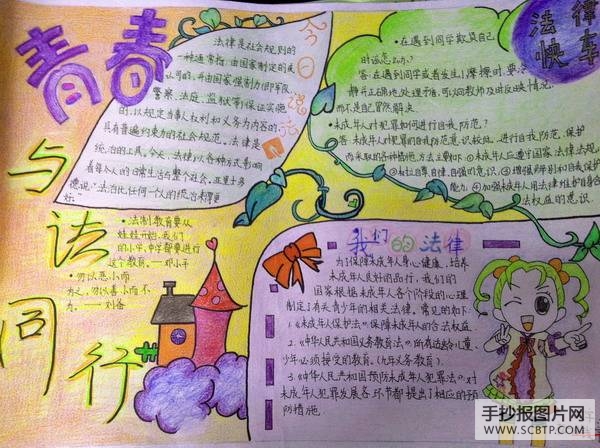 青春
与法同行
今日说法
法律是社会规则的
一种,通常指:由国家制定或
认可的,并由国家强制力(即军队、
警察、法庭、监狱等)保证实施
的,以规定当事人权利和义务为内容的,
具有普遍约束力的社会规范。法律是
统治的工具。今天,法律以各种方式影响
着每个人的日常生活与整个社会。亚里士多
德说:“法治比任何一个人的统治来得更
好。”
•法制教育要从
娃娃开始,我们
的小学、中学都要进行
这个教育。——邓小平
•勿以恶小而
为之,勿以善小而不
为。——刘备
法律
快车
•在遇到同学欺负自己
时该怎么办?
答:在遇到同学或者发生小摩擦时,要冷
静并正确地处理矛盾,可以向教师及时反映情况,
而不是配冒然解决。
•未成年人对犯罪如何进行自我防范?
答:未成年人对犯罪的自我防范意识较处,进行自我防范、保护
而采取的各种措施。方法主要如下:①未成年人应遵守国家法律法规。
②树立自尊、自律、自强的意识。③增强辨别和自我保护
能力。④加强未成年人用法律维护自身合
法权益的意识
我们的法律
为了保障未成年人身心健康,培养
未成年人良好的品行,我们的
国家根据未成年人各个阶段的心理
制定了有关青少年的相关法律。常见的如下:
1.《未成年人保护法》:保障未成年人的合法权益。
2.《中华人民共和国义务教育法》:所有适龄儿童
少年必须接受的教育。(九年义务教育)。
3.《中华人民共和国预防未成年人犯罪法》:对
未成年人犯罪发展各环节都提出了相应的预
防措施。
手抄报图片网
WWW.SCBTP.COM